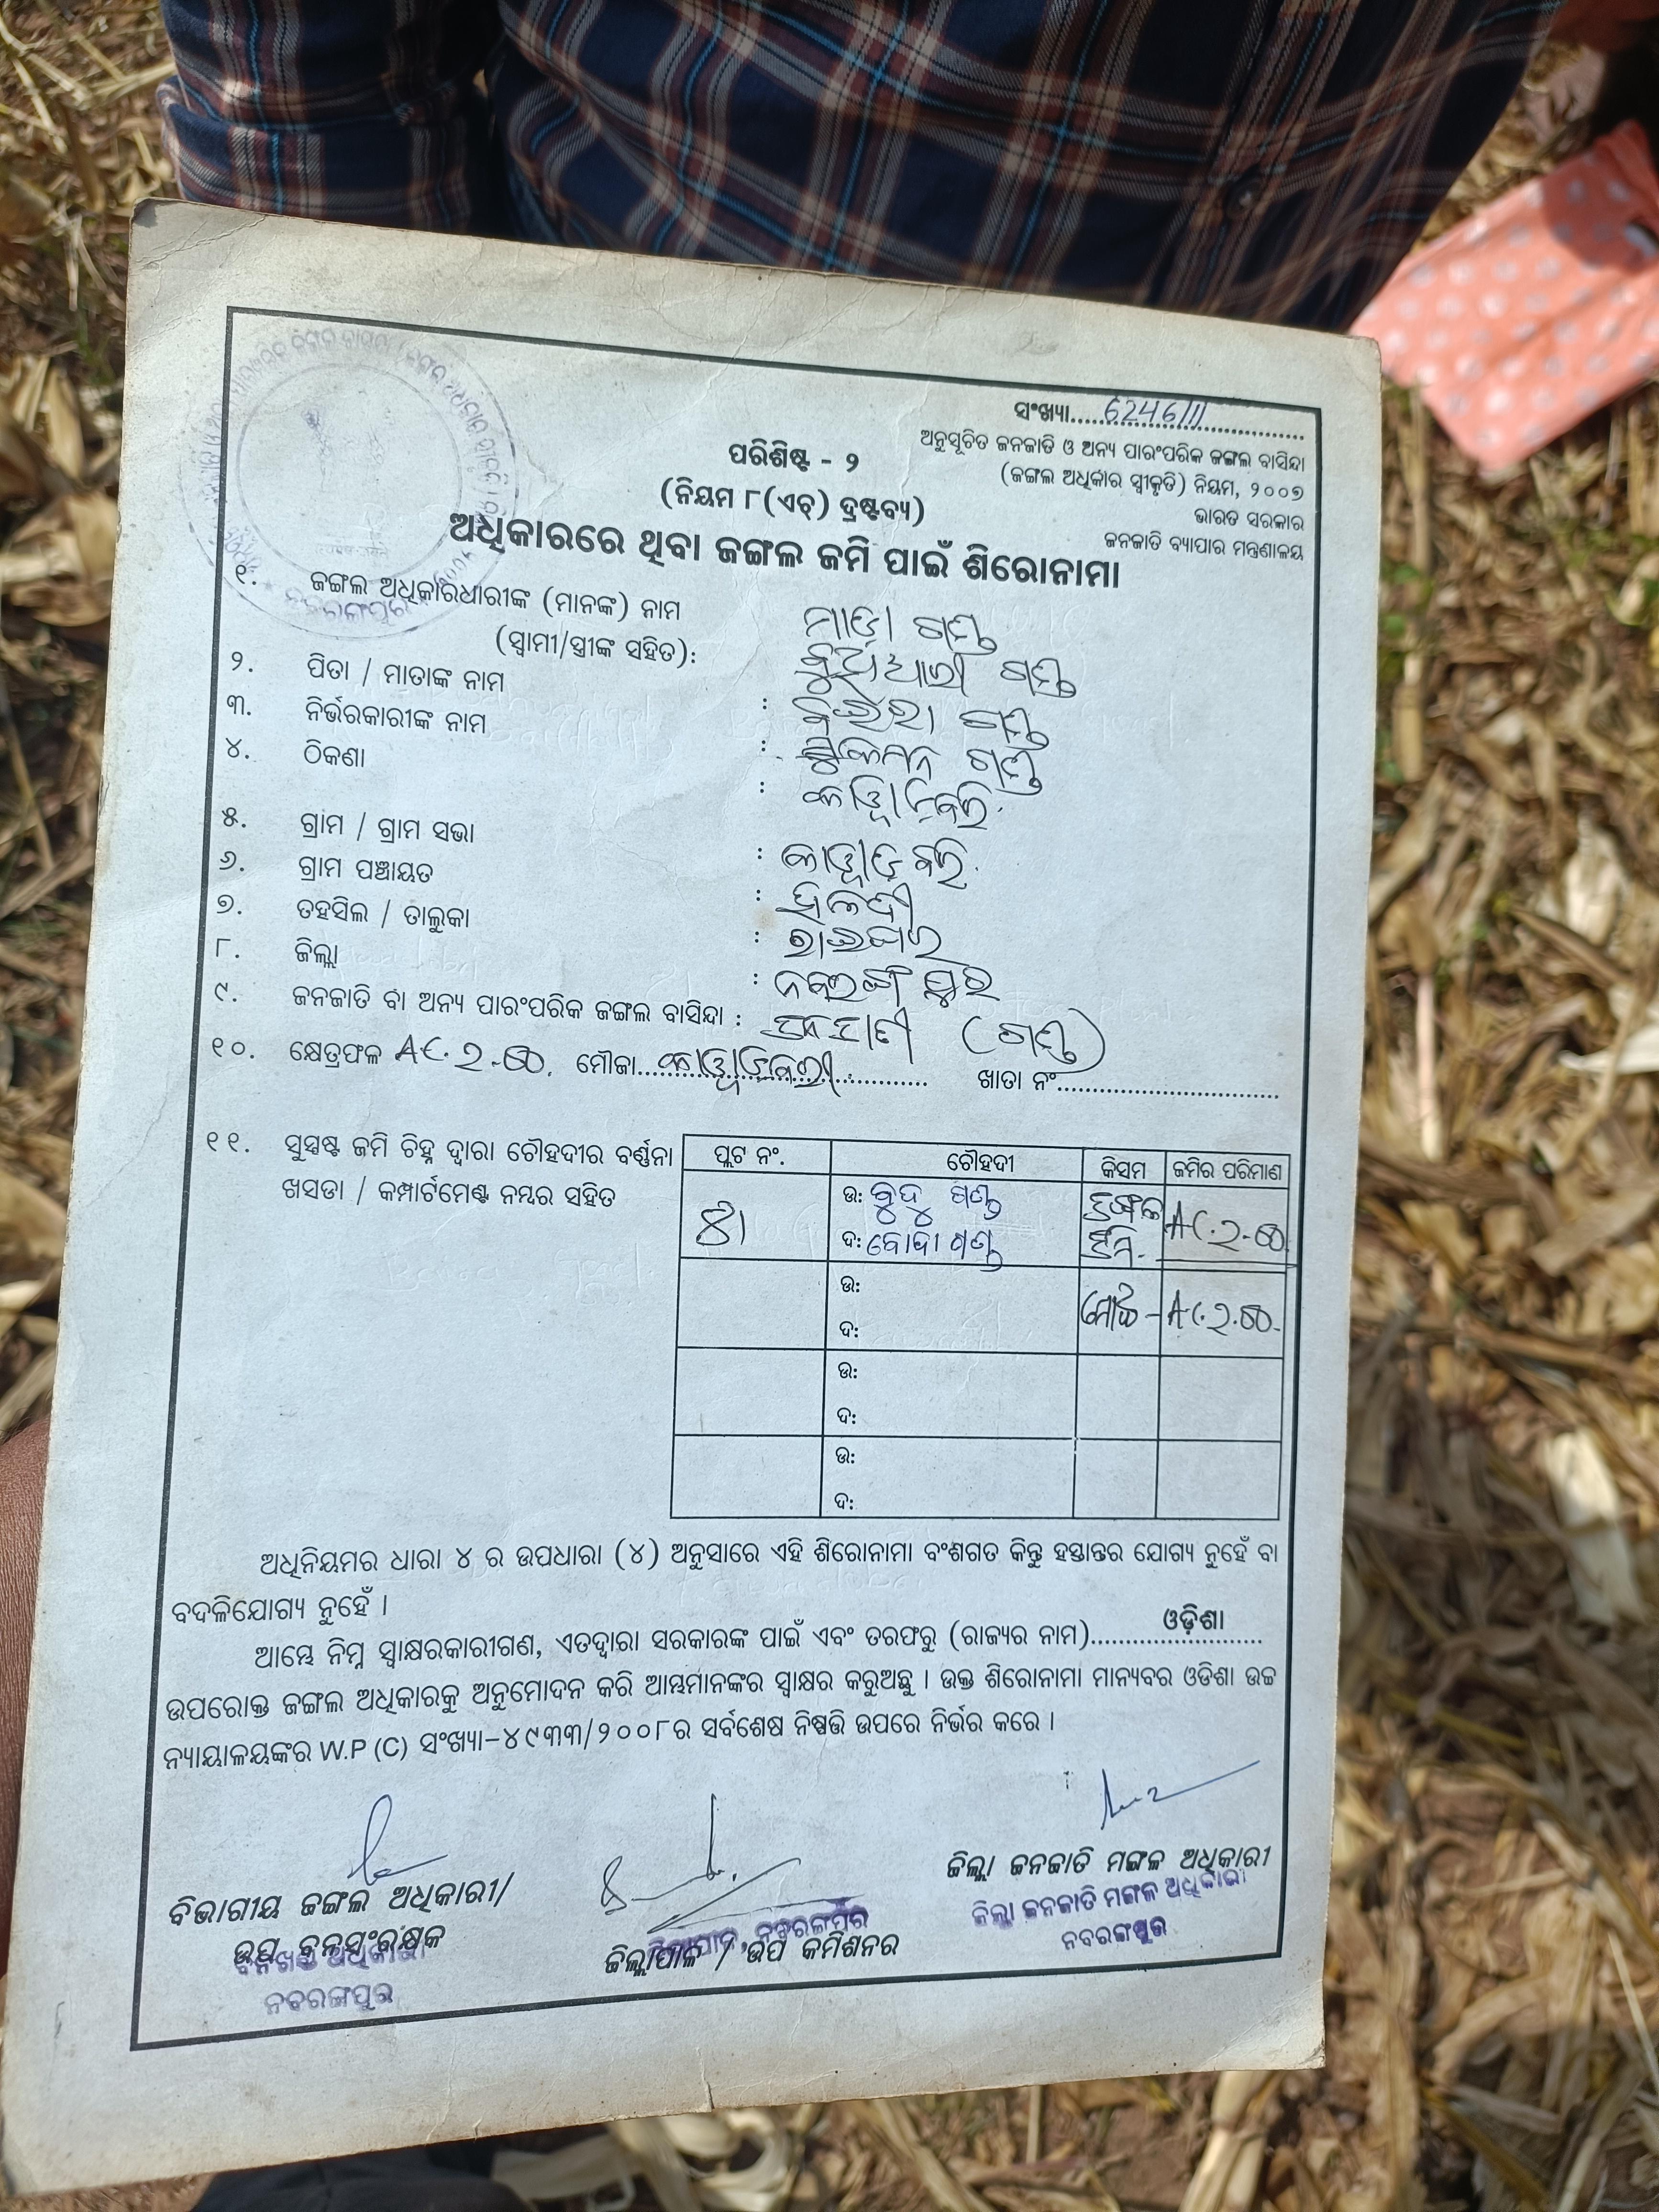 ସଂଖ୍ୟା.....6246/11
ଅନୁସୂଚିତ ଜନଜାତି ଓ ଅନ୍ୟ ପାରଂପରିକ ଜଙ୍ଗଲ ବାସିନ୍ଦା
(ଜଙ୍ଗଲ ଅଧିକାର ସ୍ୱୀକୃତି) ନିୟମ, ୨୦୦୭
ଭାରତ ସରକାର
ଜନଜାତି ବ୍ୟାପାର ମନ୍ତ୍ରଣାଳୟ
ପରିଶିଷ୍ଟ - ୨
(ନିୟମ ୮(ଏଚ୍) ଦ୍ରଷ୍ଟବ୍ୟ)
ଅଧିକାରରେ ଥିବା ଜଙ୍ଗଲ ଜମି ପାଇଁ ଶିରୋନାମା
୧. ଜଙ୍ଗଲ ଅଧିକାରଧାରୀଙ୍କ (ମାନଙ୍କ) ନାମ
(ସ୍ୱାମୀ/ସ୍ତ୍ରୀଙ୍କ ସହିତ): ଗଣ୍ଡ
୨. ପିତା / ମାତାଙ୍କ ନାମ : ଗଣ୍ଡ
୩. ନିର୍ଭରକାରୀଙ୍କ ନାମ : ଗଣ୍ଡ
୪. ଠିକଣା :
୫. ଗ୍ରାମ / ଗ୍ରାମ ସଭା :
୬. ଗ୍ରାମ ପଞ୍ଚାୟତ : ହଲଦୀ
୭. ତହସିଲ / ତାଲୁକା : ରାଇଘର
୮. ଜିଲ୍ଲା : ନବରଙ୍ଗପୁର
୯. ଜନଜାତି ବା ଅନ୍ୟ ପାରଂପରିକ ଜଙ୍ଗଲ ବାସିନ୍ଦା : (ଗଣ୍ଡ)
୧୦. କ୍ଷେତ୍ରଫଳ AC. ୨-୫୦. ମୌଜା..... ଖାତା ନଂ.....
୧୧. ସୁସ୍ପଷ୍ଟ ଜମି ଚିହ୍ନ ଦ୍ୱାରା ଚୌହଦୀର ବର୍ଣ୍ଣନା
ଖସଡା / କମ୍ପାର୍ଟମେଣ୍ଟ ନମ୍ବର ସହିତ
ପ୍ଲଟ ନଂ. ଚୌହଦୀ କିସମ ଜମିର ପରିମାଣ
ଉ: ବୁଦୁ ଗଣ୍ଡ ଜଙ୍ଗଲ AC.୨-୫୦
ଦ: ଗଣ୍ଡ ଜମି
ଉ: ମୋଟ - AC.୨.୫୦
ଦ:
ଉ:
ଦ:
ଉ:
ଦ:
ଅଧିନିୟମର ଧାରା ୪ ର ଉପଧାରା (୪) ଅନୁସାରେ ଏହି ଶିରୋନାମା ବଂଶଗତ କିନ୍ତୁ ହସ୍ତାନ୍ତର ଯୋଗ୍ୟ ନୁହେଁ ବା
ବଦଳିଯୋଗ୍ୟ ନୁହେଁ ।
ଆମ୍ଭେ ନିମ୍ନ ସ୍ୱାକ୍ଷରକାରୀଗଣ, ଏତଦ୍ୱାରା ସରକାରଙ୍କ ପାଇଁ ଏବଂ ତରଫରୁ (ରାଜ୍ୟର ନାମ).....ଓଡ଼ିଶା
ଉପରୋକ୍ତ ଜଙ୍ଗଲ ଅଧିକାରକୁ ଅନୁମୋଦନ କରି ଆମ୍ଭମାନଙ୍କର ସ୍ୱାକ୍ଷର କରୁଅଛୁ । ଉକ୍ତ ଶିରୋନାମା ମାନ୍ୟବର ଓଡିଶା ଉଚ୍ଚ
ନ୍ୟାୟାଳୟଙ୍କର W.P (C) ସଂଖ୍ୟା-୪୯୩୩/୨୦୦୮ର ସର୍ବଶେଷ ନିଷ୍ପତ୍ତି ଉପରେ ନିର୍ଭର କରେ ।
ବିଭାଗୀୟ ଜଙ୍ଗଲ ଅଧିକାରୀ/
ଉପ ବନସଂରକ୍ଷକ
ବନଖଣ୍ଡ ଅଧିକାରୀ
ନବରଙ୍ଗପୁର
ଜିଲ୍ଲାପାଳ / ଉପ କମିଶନର
ଜିଲ୍ଲାପାଳ, ନବରଙ୍ଗପୁର
ଜିଲ୍ଲା ଜନଜାତି ମଙ୍ଗଳ ଅଧିକାରୀ
ଜିଲ୍ଲା ଜନଜାତି ମଙ୍ଗଳ ଅଧିକାରୀ
ନବରଙ୍ଗପୁର